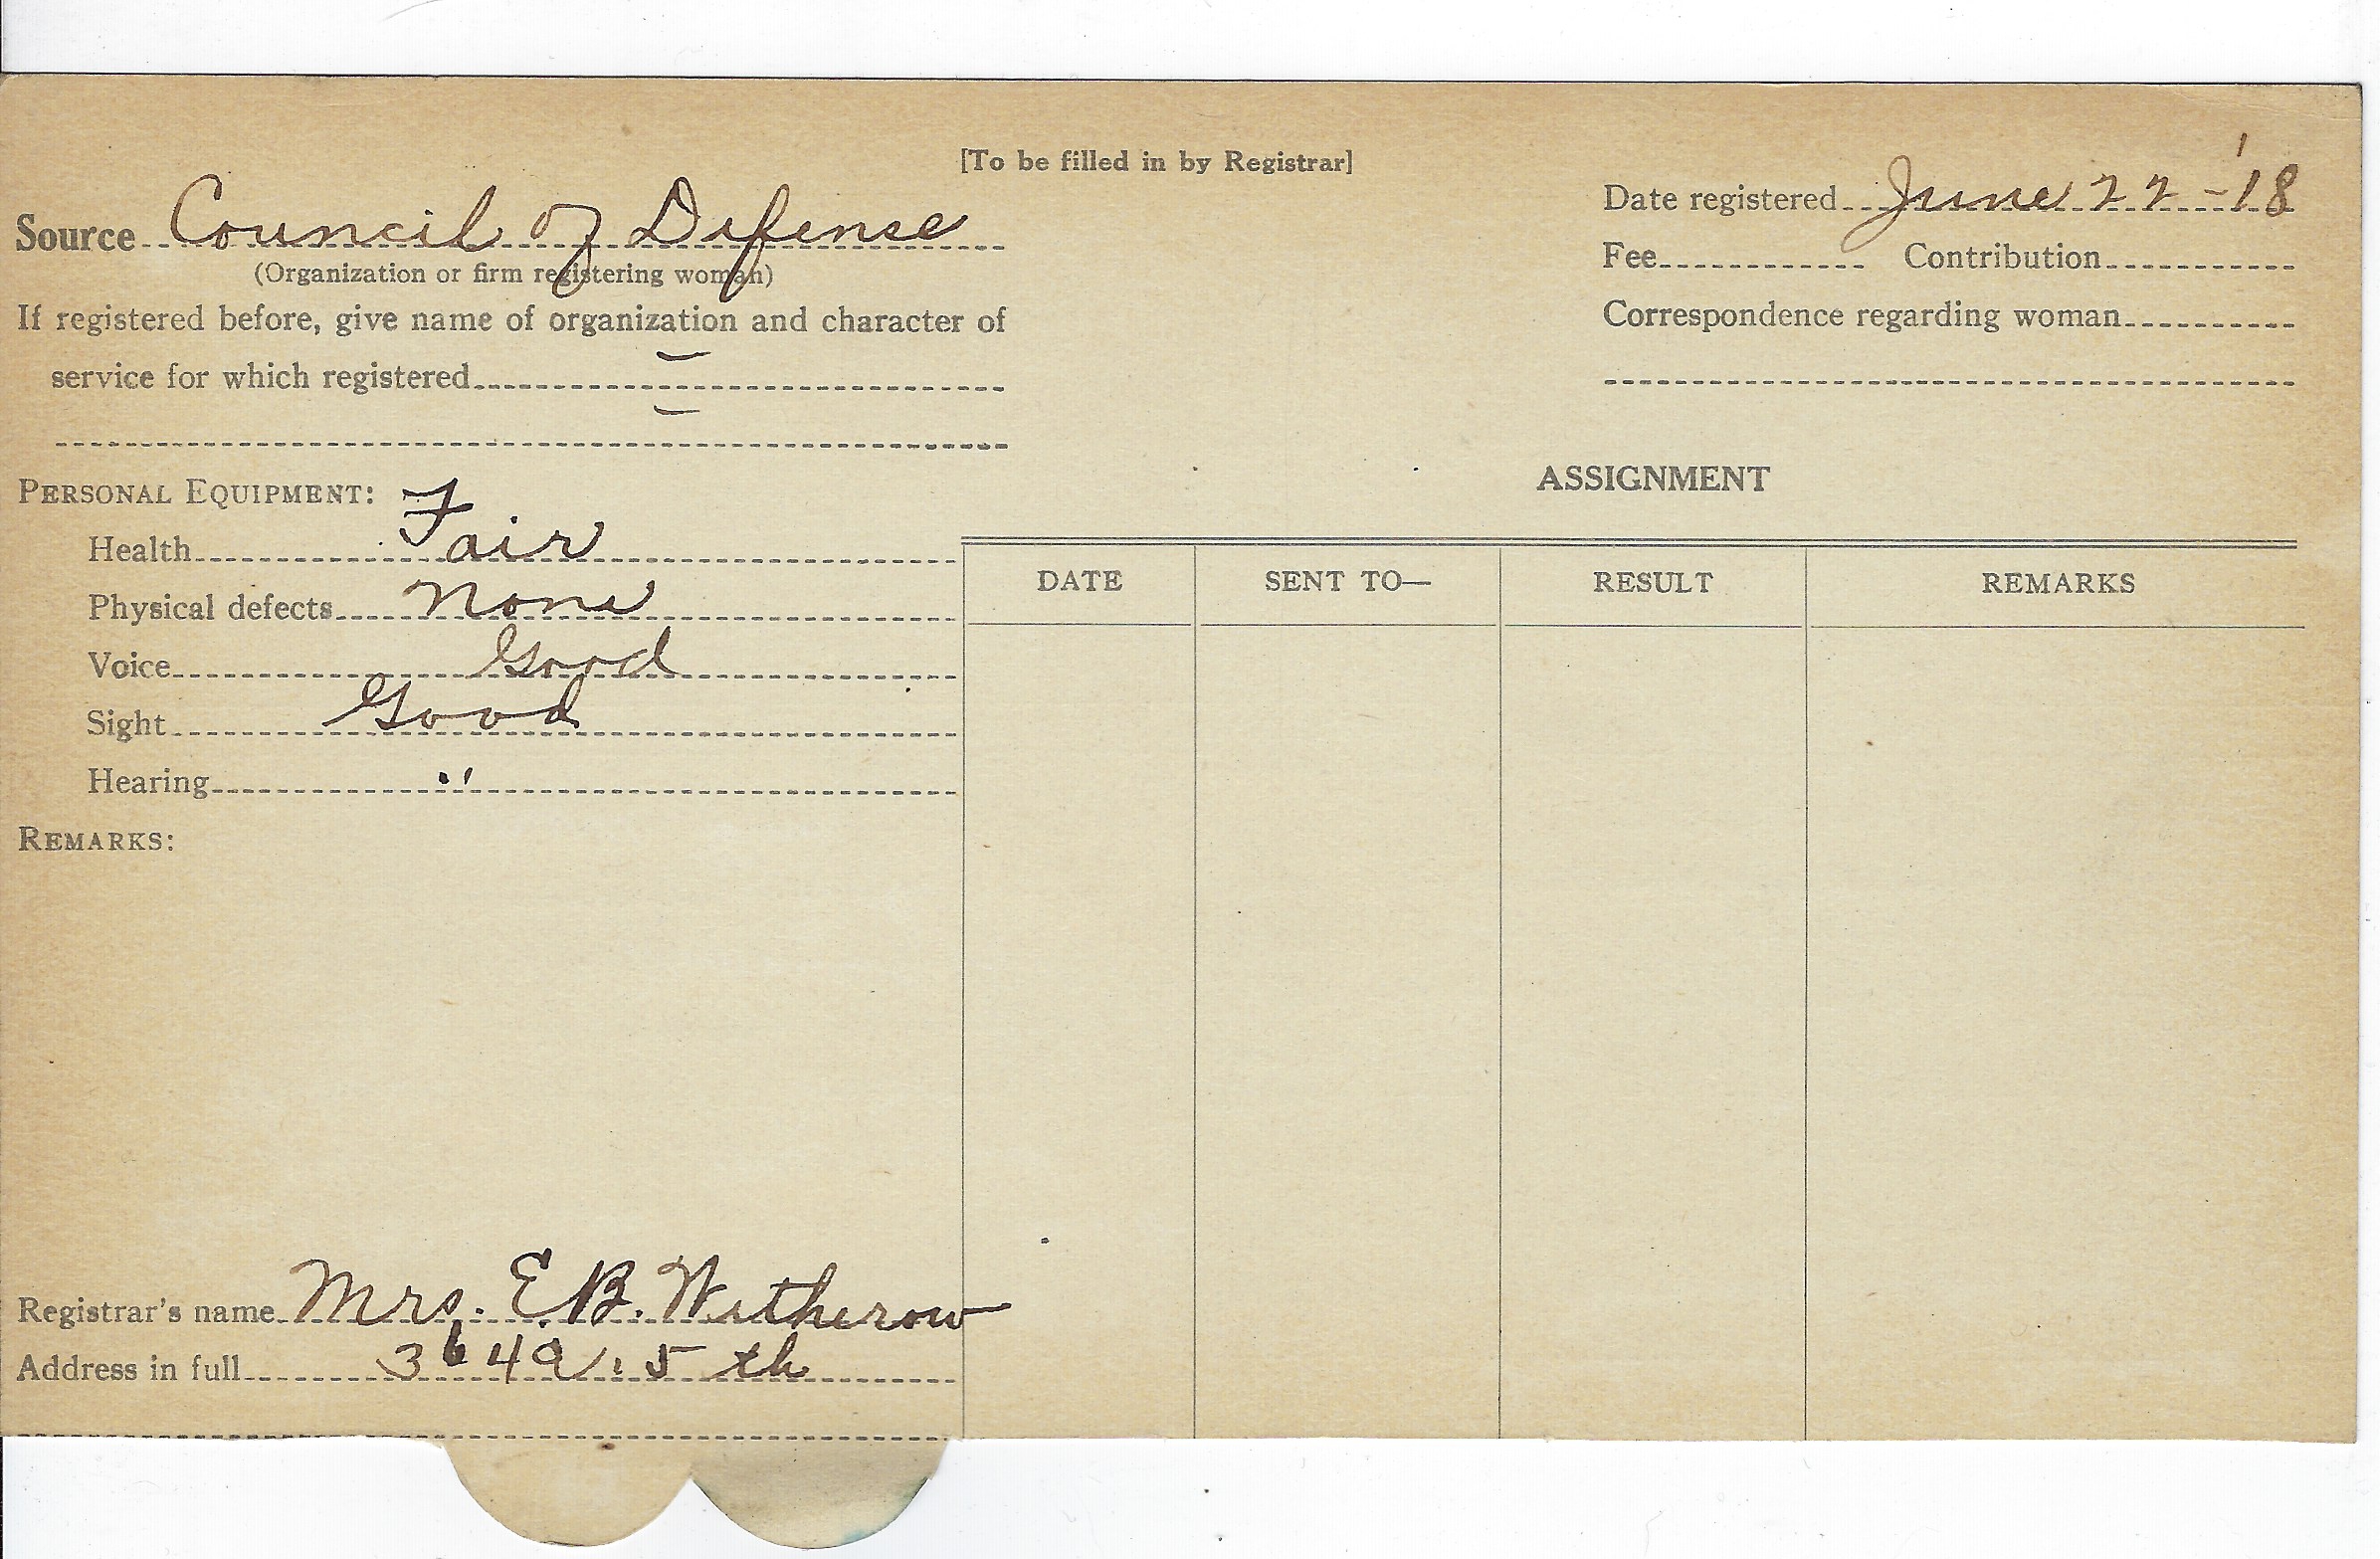 [To be filled in by Registrar]
Source Council of Defense
(Organization or firm registering woman)
If registered before, give name of organization and character of
service for which registered —
—
Date registered June 22 - '18
Fee Contribution
Correspondence regarding woman
PERSONAL EQUIPMENT:
Health Fair
Physical defects None
Voice Good
Sight Good
Hearing "
REMARKS:
Registrar's name Mrs. E.B. Witherow
Address in full 3649, 5th
ASSIGNMENT
DATE SENT TO— RESULT REMARKS